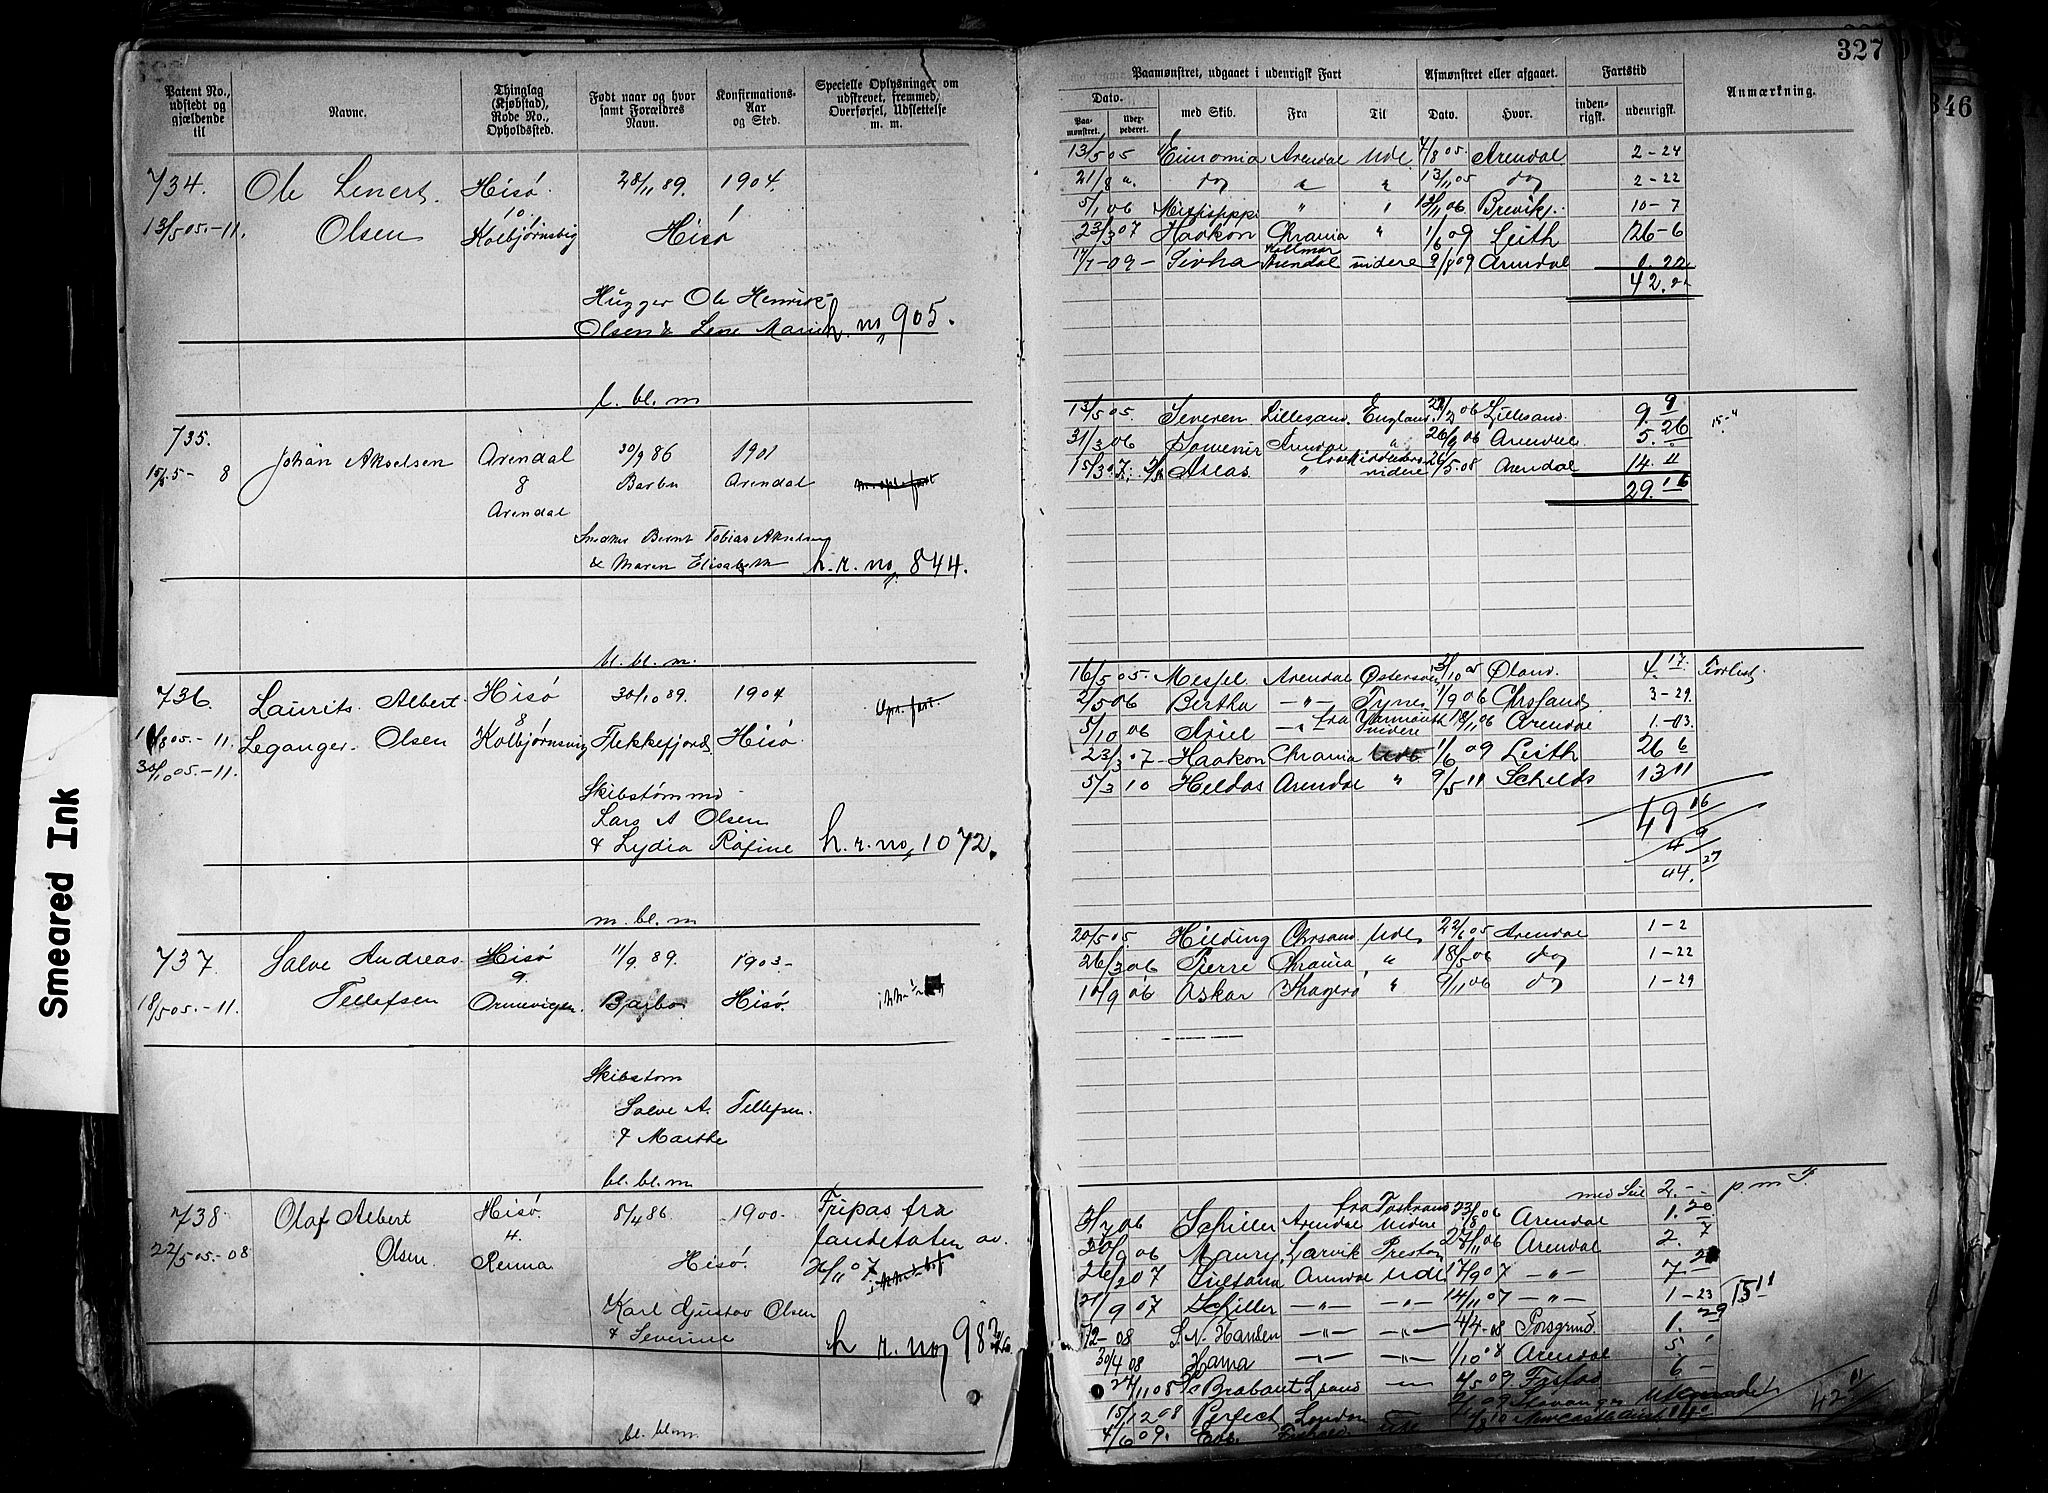 327
346
Smeared Ink
Patent No., udstedt og gjældende til
Navne.
Thinglag (Kjøbstad), Rode No., Opholdssted.
Født naar og hvor samt Forældres Navn.
Konfirmations-Aar og Sted.
Specielle Oplysninger om udskrevet, fremmed, Overførsel, Udslettelse m. m.
Paamønstret, udgaaet i udenrigsk Fart
Afmønstret eller afgaaet.
Fartstid
Anmærkning.
Dato.
Paa-mønstret.
Udex-pederet.
med Skib.
Fra
Til
Dato.
Hvor.
inden-rigsk.
udenrigsk.
734. Ole Lenert Hisø 28/11 89. 1904.
13/5 05.-11. Olsen 10 Kolbjørnsvig Hisø
Hugger Ole Henrik
Olsen & Lene Marie h. no 905.
l. bl. m
13/5 05 Eunomia Arendal Udl 4/8 05. Arendal 2-24
21/8 " do " " 13/11 05 do 2-22
5/1 06 Missisippi " " 12/11 06 Brevik. 10-7
23/3 07 Haakon Chrania " 1/6 09 Leith 26-6
17/7-09- Sirha Arendal videre 9/8 09 Arendal 0.22
42.
735. Johan Akselsen Arendal 30/9 86 1901
15/5 5- 8 8 Barbu Arendal
Arendal
Smed Bernt Tobias Akselsen
& Maren Elisabeth h. r. no 844.
bl. bl. m.
13/5 05 Severen Lillesand. England. 22/2 06 Lillesand. 9. 9
31/3 06 Souvenir Arendal " 26/9 06 Arendal 5. 26
15/3 07. Atlas. " videre 26/5 08 Arendal 14. 11
29. 16
736. Laurits Albert Hisø 30/10 89. 1904
8 05.-11. Leganger Olsen 8 Kolbjørnsvig Flekkefjord Hisø
30/10 05.-11.
Skibstømmd
Lars A Olsen
& Lydia Rosine h. r. no, 1072.
m. bl. m
16/5 05. Messel Arendal Østersøen 3/10 05 Øland. 4. 17. Forlist.
2/5 06 Bertha -"- Tyne 1/9 06 Chrsand 3-29
5/10 06 Ariel -" fra Yarmouth videre 18/11 06 Arendal 1.-03
23/3 07- Haakon Chrania Udl 1/6 09 Leith 26 6
5/3 10 Hildas Arendal " 9/5 11 Schilds 13 11
49 16
4 9
44. 27
737. Salve Andreas Hisø 11/9. 89. 1903-
18/5 05.-11. Tellefsen 9. Ormevigen. Barbo Hisø.
Skibstøm
Salve A. Tellefsen.
& Marthe
bl. bl. m
20/5 05. Hilding Chrsand Udl 22/6 05 Arendal 1-2
26/3 06 Pierre Chrania " 18/5 06 do 1-22
10/9 06 Oskar Kragerø " 9/11 06 do 1-29
738. Olaf Albert Hisø. 8/4 86. 1900- Fripas fra
22/5 05.-08 Olsen. 4. Renna Hisø. landetaten av.
26/11 07
Karl Gustav Olsen
& Severine h r. no, 98
bl. bl. m.
med Seil 2.-- p. m
3/7 06 Schiller Arendal videre 23/8 06 Arendal 1. 20
20/9 06 Maury. Larvik Preston 27/11 06 Arendal 2. 7
26/2 07 Sultana Arendal Udl 17/9 07 -"- 7.
21/9 07 Schiller -"- -"- 14/11 07 -"- 1-23
15 11
/2-08 S.N. Hansen -"- -"- 4/4-08 Porsgrund 1. 29
30/4 08 Hama -"- -"- 1/10 08 Arendal 5.
24/11 08 Brabant Lsand -"- 4/5 09 6 -
15/12 08 Perfect London Stavanger
4/6 09. Newcastle
42